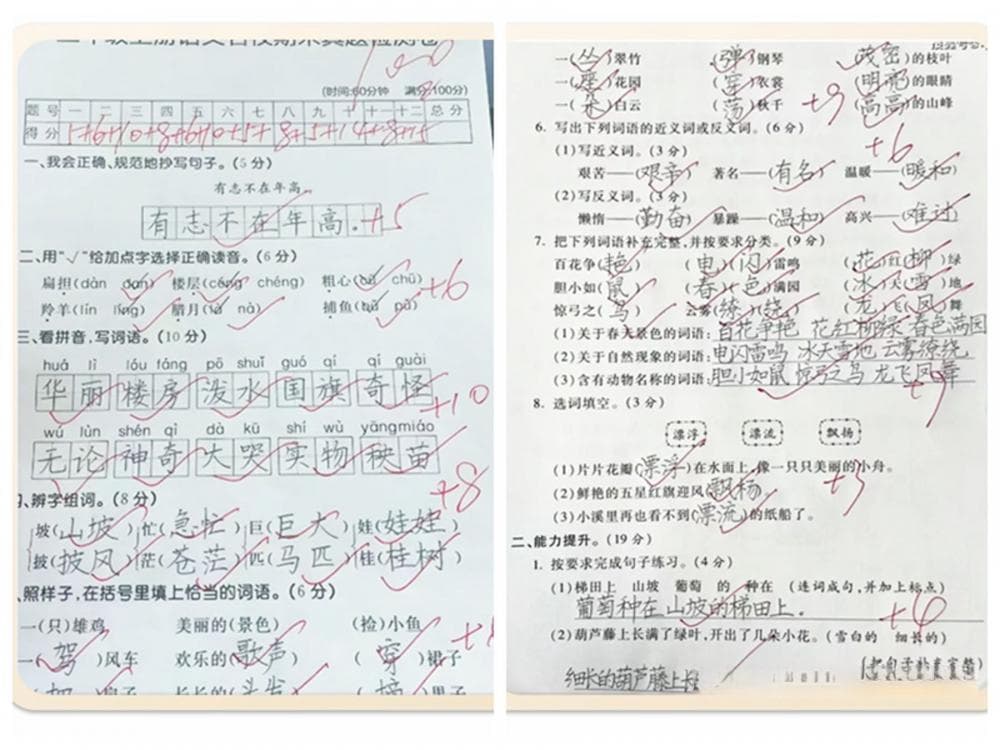 二年级上册语文名校期末真题检测卷
100
(时间:60分钟 满分:100分)
题号 一 二 三 四 五 六 七 八 九 十 十一 十二 总分
得分 5+6+10+8+6+10+5+8+5+14+8+15
一、我会正确、规范地抄写句子。(5分)
有志不在年高。
有志不在年高。 +5
二、用“√”给加点字选择正确读音。(6分)
扁担(dàn dan) 楼层(céng chéng) 粗心(cū chū) +6
羚羊(lín líng) 腊月(là nà) 捕鱼(bǔ pǔ)
三、看拼音,写词语。(10分)
huá lì lóu fáng pō shuǐ guó qí qí guài
华丽 楼房 泼水 国旗 奇怪 +10
wú lùn shén qí dà kū shí wù yāng miáo
无论 神奇 大哭 实物 秧苗
四、辨字组词。(8分) +8
坡(山坡) 忙(急忙) 巨(巨大) 娃(娃娃)
披(披风) 茫(苍茫) 匹(马匹) 桂(桂树)
五、照样子,在括号里填上恰当的词语。(6分)
一(只)雄鸡 美丽的(景色) (捡)小鱼
一(驾)风车 欢乐的(歌声) (穿)裙子
长长的(头发)
一(丛)翠竹 (弹)钢琴 (茂密)的枝叶
一(座)花园 (穿)衣裳 (明亮)的眼睛
一(朵)白云 (荡)秋千 +9 (高高)的山峰
6. 写出下列词语的近义词或反义词。(6分)
(1)写近义词。(3分) +6
艰苦——(艰辛) 著名——(有名) 温暖——(暖和)
(2)写反义词。(3分)
懒惰——(勤奋) 暴躁——(温和) 高兴——(难过)
7. 把下列词语补充完整,并按要求分类。(9分)
百花争(艳) (电)(闪)雷鸣 (花)红(柳)绿
胆小如(鼠) (春)(色)满园 (冰)天(雪)地
惊弓之(鸟) 云雾(缭)(绕) (龙)飞(凤)舞
(1)关于春天景色的词语:百花争艳 花红柳绿 春色满园
(2)关于自然现象的词语:电闪雷鸣 冰天雪地 云雾缭绕
(3)含有动物名称的词语:胆小如鼠 惊弓之鸟 龙飞凤舞
+9
8. 选词填空。(3分)
漂浮 漂流 飘扬
(1)片片花瓣(漂浮)在水面上,像一只只美丽的小舟。
(2)鲜艳的五星红旗迎风(飘杨)。 +3
(3)小溪里再也看不到(漂流)的纸船了。
二、能力提升。(19分)
1. 按要求完成句子练习。(4分)
(1)梯田上 山坡 葡萄 的 种在 (连词成句,并加上标点)
葡萄种在山坡的梯田上。 +4
(2)葫芦藤上长满了绿叶,开出了几朵小花。(雪白的 细长的)
细长的葫芦藤上长